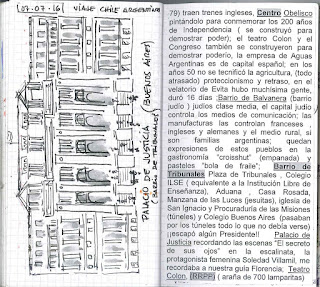 07.07.16 | VIAJE CHILE ARGENTINA
PALACIO DE JUSTICIA (BUENOS AIRES)
BARRIO DE TRIBUNALES
79) traen trenes ingleses, Centro Obelisco
pintándolo para conmemorar los 200 años
de Independencia ( se construyó para
demostrar poder); el teatro Colon y el
Congreso también se construyeron para
demostrar poder, la empresa de Aguas
Argentinas es de capital español; en los
años 50 no se tecnificó la agricultura, (todo
atrasado) protecionismo y retraso, en el
velatorio de Evita hubo muchísima gente,
duró 16 días .Barrio de Balvanera (barrio
judío ) judíos clase media, el capital judío
controla los medios de comunicación; las
manufacturas las controlan franceses
ingleses y alemanes y el medio rural, si
son familias argentinas; quedan
expresiones de estos pueblos en la
gastronomía "croishut" (empanada) y
pasteles "bola de fraile"; Barrio de
Tribunales Plaza de Tribunales , Colegio
ILSE ( equivalente a la Institución Libre de
Enseñanza), Aduana , Casa Rosada,
Manzana de las Luces (jesuitas), iglesia de
San Ignacio y Procuraduría de las Misiones
(túneles) y Colegio Buenos Aires (pasaban
por los túneles todo lo que no debía verse)
¡escapó algún Presidente! Palacio de
Justicia recordando las escenas "El secreto
de sus ojos" en la escalinata, la
protagonista femenina Soledad Vilamil, me
recordaba a nuestra guía Florencia; Teatro
Colon (RRPP) ( araña de 700 lamparitas)